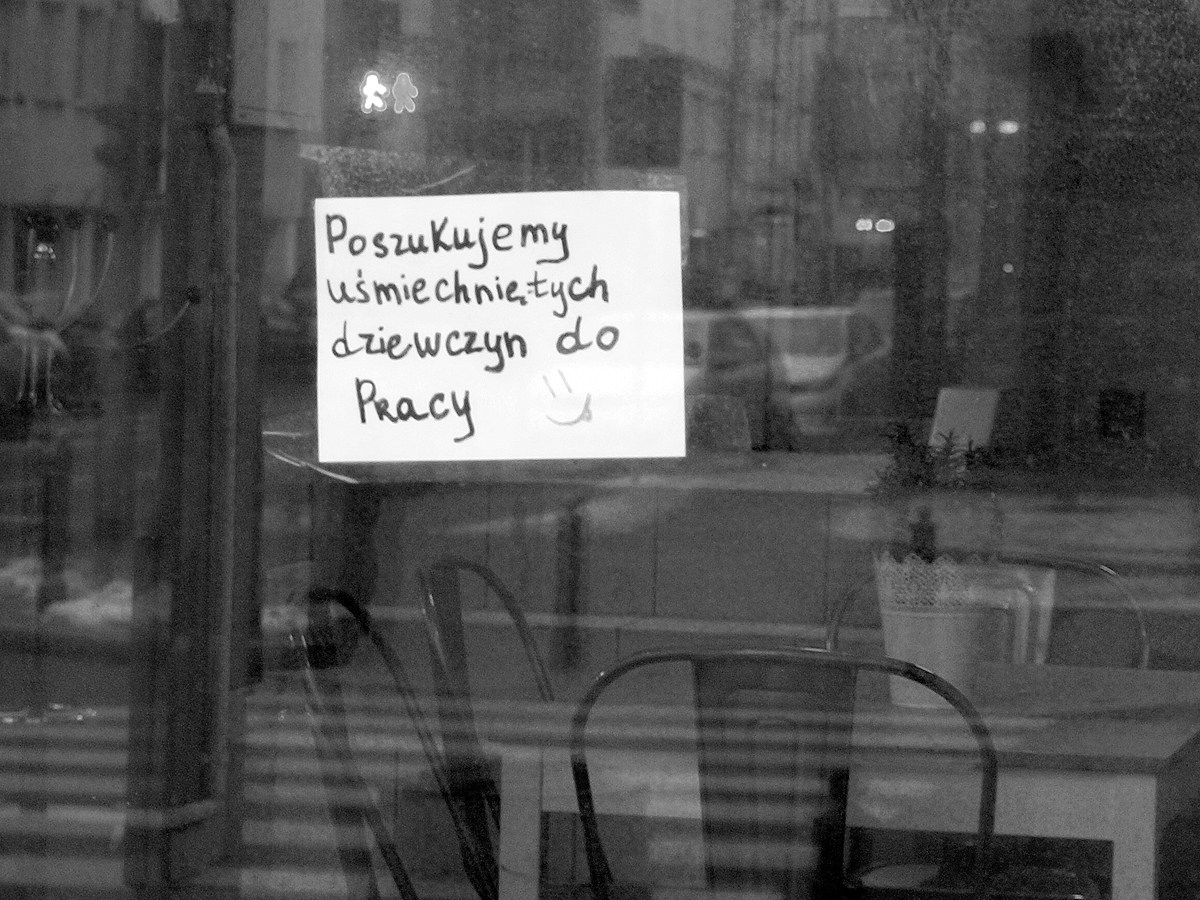 Poszukujemy
uśmiechniętych
dziewczyn do
Pracy